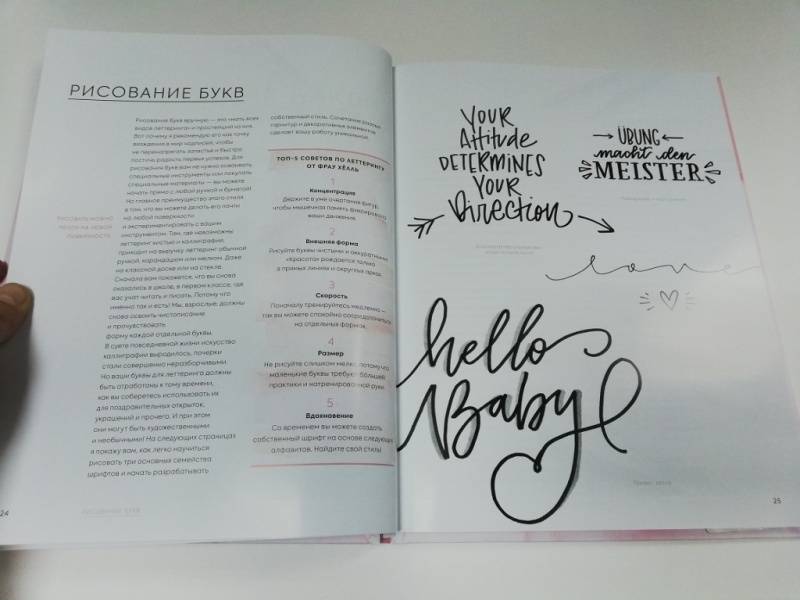 РИСОВАНИЕ БУКВ
Рисование букв вручную — это «мать всех
видов леттеринга» и простейший из них.
Вот почему я рекомендую его как точку
вхождения в мир надписей, чтобы
не перенапрягать запястья и быстро
постичь радость первых успехов. Для
рисования букв вам не нужно осваивать
специальные инструменты или покупать
специальные материалы — вы можете
начать прямо с любой ручкой и бумагой!
Но главное преимущество этого стиля
в том, что вы можете делать его почти
на любой поверхности
и экспериментировать с вашим
инструментом. Там, где невозможны
леттеринг кистью и каллиграфия,
приходит на выручку леттеринг обычной
ручкой, карандашом или мелком. Даже
на классной доске или на стекле.
Сначала вам покажется, что вы снова
оказались в школе, в первом классе, где
вас учат читать и писать. Потому что
именно так и есть! Мы, взрослые, должны
снова освоить чистописание
и прочувствовать
форму каждой отдельной буквы.
В суете повседневной жизни искусство
каллиграфии выродилось, почерки
стали совершенно неразборчивыми.
Но ваши буквы для леттеринга должны
быть отработаны к тому времени,
как вы соберетесь использовать их
для поздравительных открыток,
украшений и прочего. И при этом
они могут быть художественными
и необычными! На следующих страницах
я покажу вам, как легко научиться
рисовать три основных семейства
шрифтов и начать разрабатывать
Рисовать можно
почти на любой
поверхности
собственный стиль. Сочетание разных
гарнитур и декоративных элементов
сделает вашу работу уникальной.
ТОП-5 СОВЕТОВ ПО ЛЕТТЕРИНГУ
ОТ ФРАУ ХЁЛЛЬ
1
Концентрация
Держите в уме очертания фигур,
чтобы мышечная память фиксировала
ваши движения.
2
Внешняя форма
Рисуйте буквы чистыми и аккуратными.
«Красота» рождается только
в прямых линиях и округлых арках.
3
Скорость
Поначалу тренируйтесь медленно —
так вы можете спокойно сосредоточиться
на отдельных формах.
4
Размер
Не рисуйте слишком мелко, потому что
маленькие буквы требуют большей
практики и натренированной руки.
5
Вдохновение
Со временем вы можете создать
собственный шрифт на основе следующих
алфавитов. Найдите свой стиль!
24
РИСОВАНИЕ БУКВ
YOUR
Attitude
DETERMINES
YOUR
Direction
ÜBUNG
macht den
MEISTER
love
hello
Baby
25